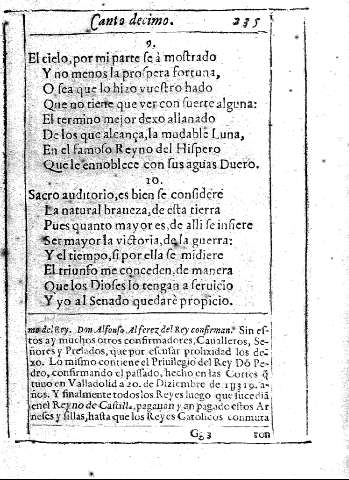 Canto decimo. 235
9.
El cielo, por mi parte se à mostrado
Y no menos la prospera fortuna,
O sea que lo hizo vuestro hado
Que no tiene que ver con suerte alguna:
El termino mejor dexo allanado
De los que alcança, la mudable Luna,
En el famoso Reyno del Hispero
Que le ennoblece con sus aguas Duero.
10.
Sacro auditorio, es bien se considere
La natural braueza, de esta tierra
Pues quanto mayor es, de alli se insiere
Ser mayor la victoria, de la guerra:
Y el tiempo, si por ella se midiere
El triunfo me conceden, de manera
Que los Dioses lo tengan a seruicio
Y yo al Senado quedarè propicio.
mo del Rey. Don Alfonso, Alferez del Rey confirman. Sin es-
tos ay muchos otros confirmadores, Caualleros, Se-
ñores y Prelados, que por escusar prolixidad los de-
xo. Lo mismo contiene el Priuilegio del Rey Dõ Pe-
dro, confirmando el passado, hecho en las Cortes q̃
tuuo en Valladolid a 20. de Diziembre de a-
ños. Y finalmente todos los Reyes luego que sucediã
en el Reyno de Castill., pagauan y an pagado estos Ar
neses y sillas, hasta que los Reyes Catolicos conmuta
Gg 3 ron